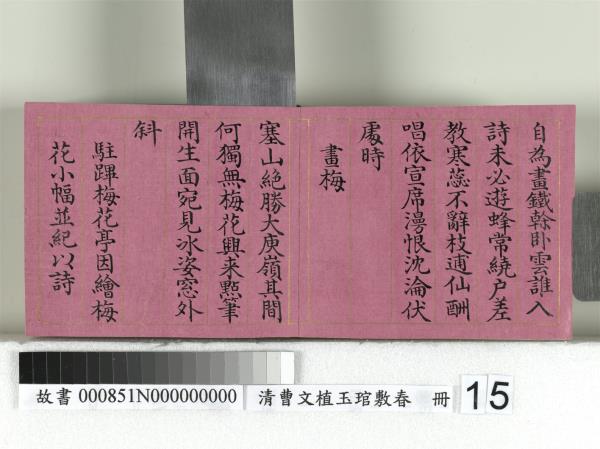 自為畫鐵榦卧雲誰入
詩未必遊蜂常繞户差
教寒蕊不辭枝逋仙酬
唱依宣席漫恨沈淪伏
處時
畫梅
塞山絶勝大庾嶺其間
何獨無梅花興来㸃筆
開生面宛見冰姿窓外
斜
駐蹕梅花亭因繪梅
花小幅並紀以詩
故書 000851N000000000 清曹文植玉琯敷春 冊 15